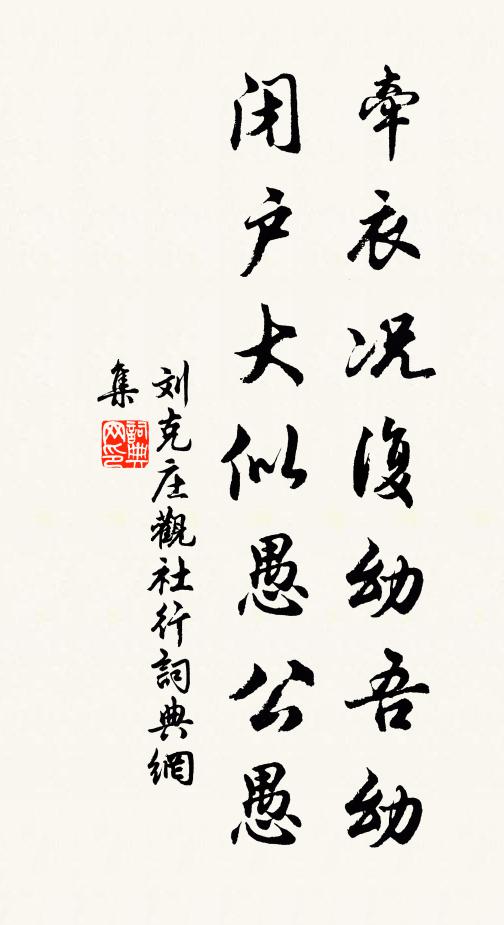 牽衣况復幼吾幼
闭户大似愚公愚
刘克庄觀社行詞典網
集
詞典网印